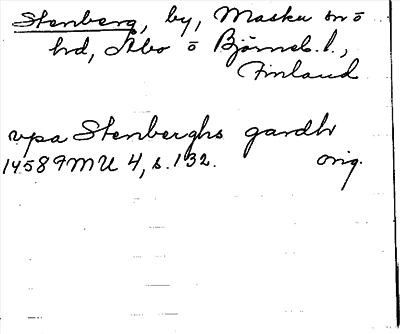 Stenberg, by, Masku sn o
hd, Åbo o Björneb. l.,
Finland
vpa Stenberghs gardh
1458 9MU 4, s. 132. orig.